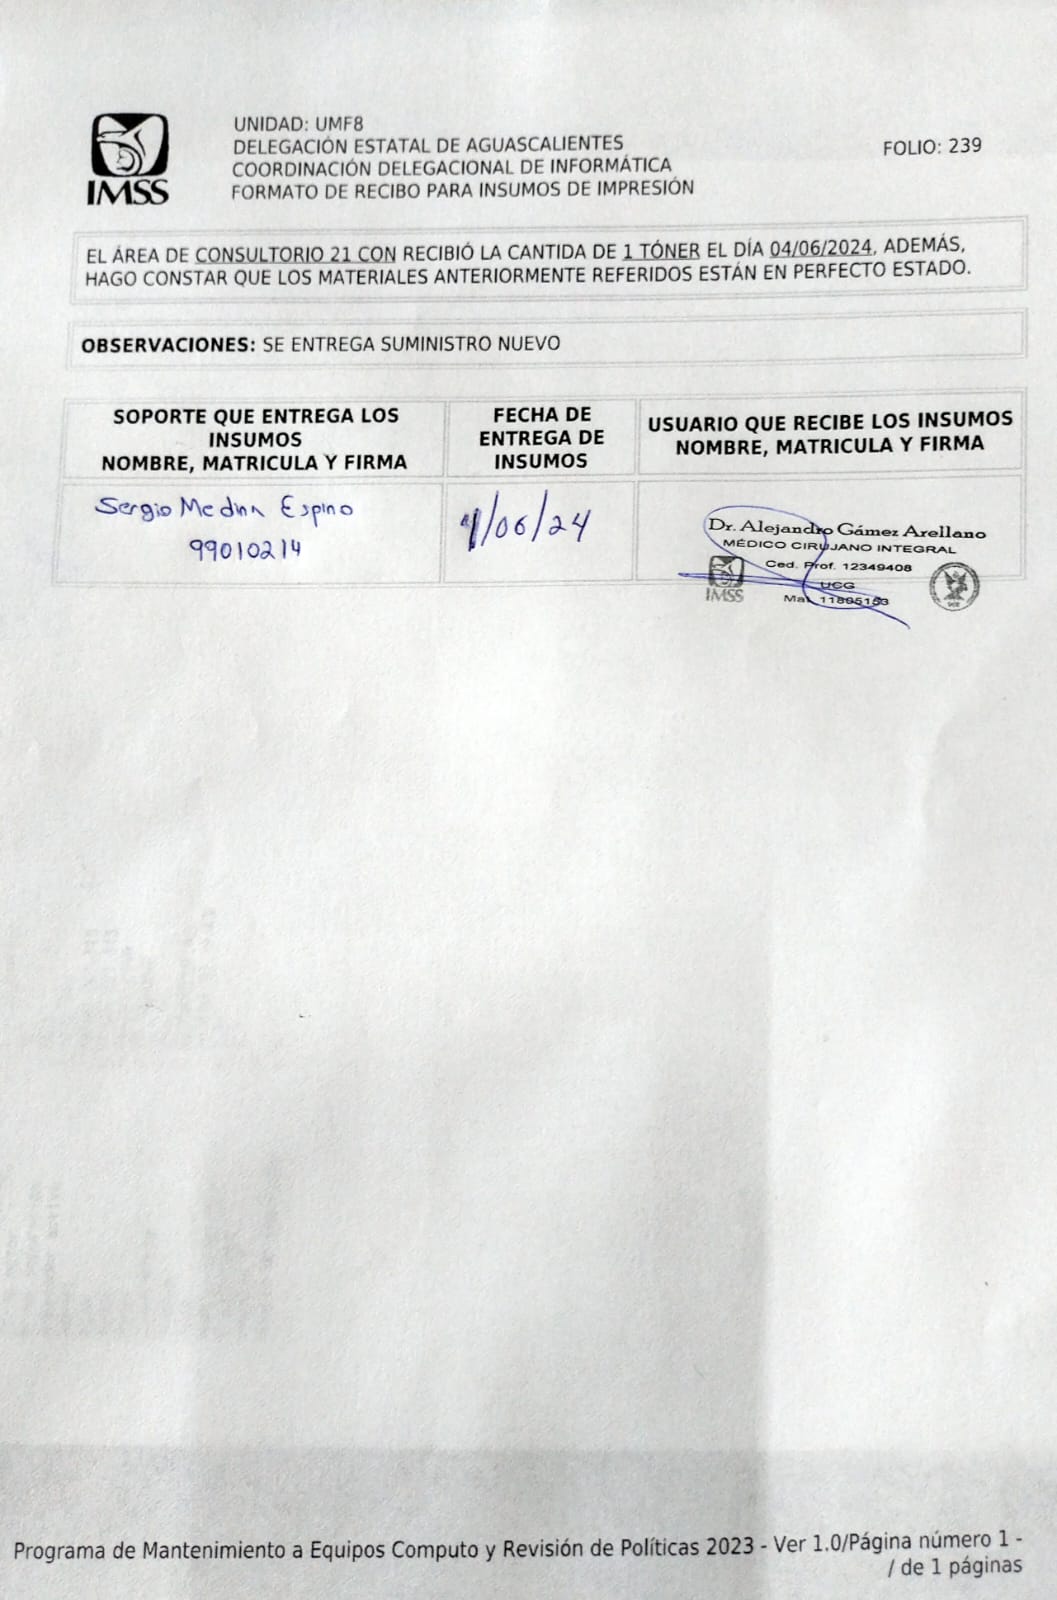 UNIDAD: UMF8
DELEGACIÓN ESTATAL DE AGUASCALIENTES
COORDINACIÓN DELEGACIONAL DE INFORMÁTICA
FORMATO DE RECIBO PARA INSUMOS DE IMPRESIÓN
FOLIO: 239
IMSS
EL ÁREA DE CONSULTORIO 21 CON RECIBIÓ LA CANTIDA DE 1 TÓNER EL DÍA 04/06/2024, ADEMÁS,
HAGO CONSTAR QUE LOS MATERIALES ANTERIORMENTE REFERIDOS ESTÁN EN PERFECTO ESTADO.
OBSERVACIONES: SE ENTREGA SUMINISTRO NUEVO
SOPORTE QUE ENTREGA LOS
INSUMOS
NOMBRE, MATRICULA Y FIRMA
FECHA DE
ENTREGA DE
INSUMOS
USUARIO QUE RECIBE LOS INSUMOS
NOMBRE, MATRICULA Y FIRMA
Sergio Medina Espino
99010214
4/06/24
Dr. Alejandro Gámez Arellano
MÉDICO CIRUJANO INTEGRAL
Ced. Prof. 12349408
UCG
IMSS
Mat.
Programa de Mantenimiento a Equipos Computo y Revisión de Políticas 2023 - Ver 1.0/Página número 1 -
/ de 1 páginas